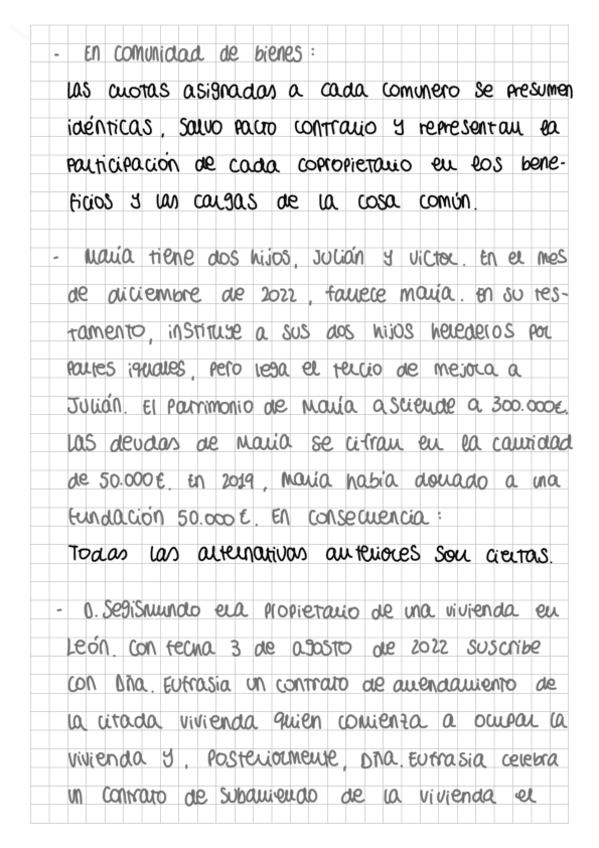 - En comunidad de bienes:
Las cuotas asignadas a cada comunero se presumen
idénticas, salvo pacto contrario y representan la
participación de cada copropietario en los bene-
ficios y las cargas de la cosa común.
- María tiene dos hijos, Julián y Victor. En el mes
de diciembre de 2022, fallece maría. En su tes-
tamento, instituye a sus dos hijos herederos por
partes iguales, pero lega el tercio de mejora a
Julián. El patrimonio de María asciende a 300.000€.
Las deudas de María se cifran en la cantidad
de 50.000€. En 2019, María había donado a una
fundación 50.000€. En consecuencia:
Todas las alternativas anteriores son ciertas.
- D. Segismundo era propietario de una vivienda en
León. Con fecha 3 de agosto de 2022 suscribe
con Dña. Eufrasia un contrato de arrendamiento de
la citada vivienda quien comienza a ocupar la
vivienda y, posteriormente, Dña. Eufrasia celebra
un contrato de subarriendo de la vivienda el